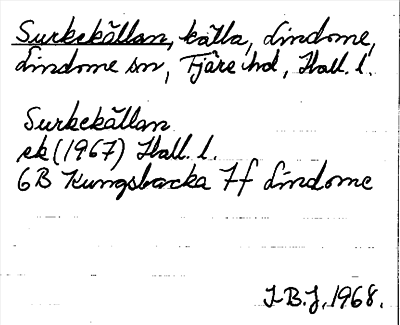 Surkekällan, källa, Lindome,
Lindome sn, Fjäre hd, Hall. l.
Surkekällan
ek (1967) Hall. l.
6B Kungsbacka 7f Lindome
I.B.J. 1968.